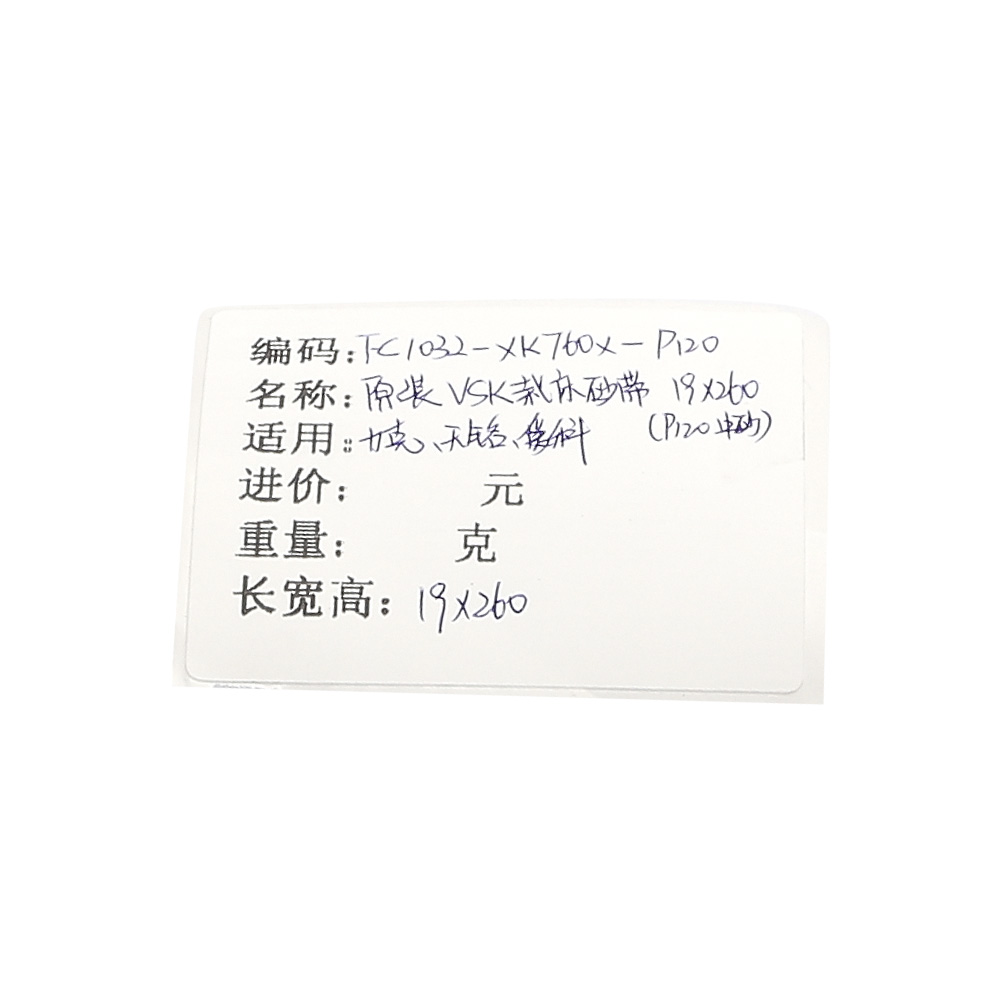 编码：TC1032-XK760X-P120
名称：原装VSK款灰砂带 19X260
适用：力克、天铭、 (P120中砂)
进价： 元
重量： 克
长宽高：19X260